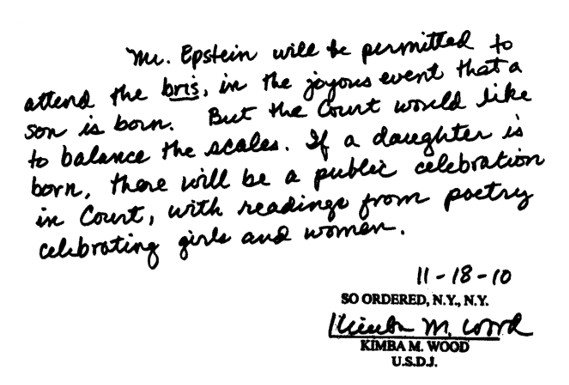 Mr. Epstein will be permitted to
attend the bris, in the joyous event that a
son is born. But the Court would like
to balance the scales. If a daughter is
born, there will be a public celebration
in Court, with readings from poetry
celebrating girls and women.
11-18-10
SO ORDERED, N.Y., N.Y.
Kimba M. Wood
KIMBA M. WOOD
U.S.D.J.